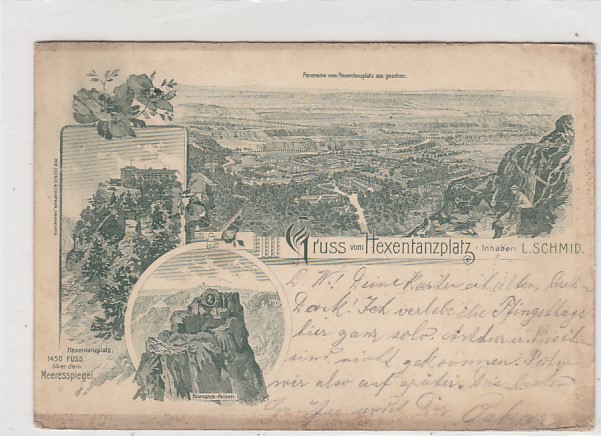 Panorama vom Hexentanzplatz aus gesehen.
Gruss vom Hexentanzplatz, Inhaber: L. SCHMID.
L. W.! Deine Karten erhalten, besten
Dank! Ich verlebe die Pfingsttage
hier ganz solo. Arthur u.
sind nicht gekommen.
wir also auf später. Die besten
Grüße sendet Dir Oskar
Hexentanzplatz.
1450 FUSS
über dem
Meeresspiegel.
Bismarck-Felsen.